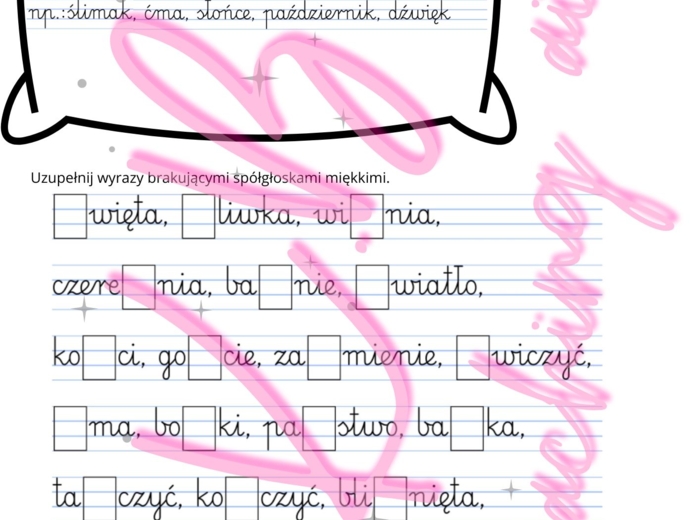 np.: ślimak, ćma, słońce, październik, dźwięk
Uzupełnij wyrazy brakującymi spółgłoskami miękkimi.
□więta, □liwka, wi□nia,
czere□nia, ba□nie, □wiatło,
ko□ci, go□cie, za□mienie, □wiczyć,
□ma, bo□ki, pa□stwo, ba□ka,
ta□czyć, ko□czyć, bli□nięta,